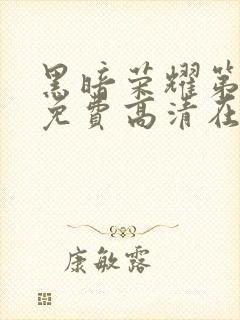 黑暗荣耀第
免费高清在
康敏露